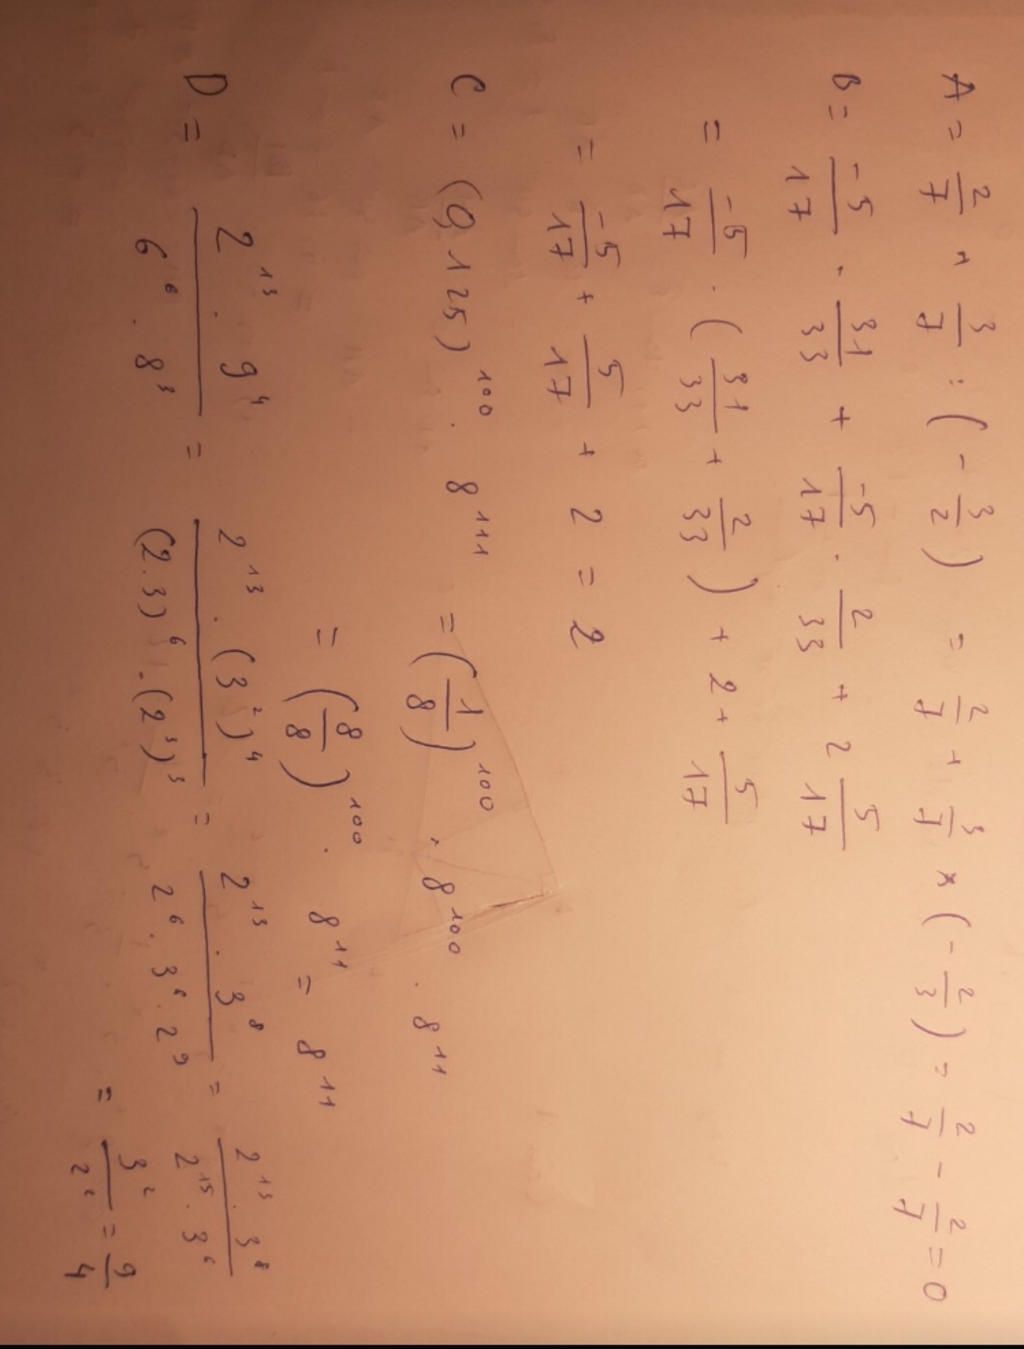 A = 2/7 + 3/7 : (-3/2) = 2/7 + 3/7 × (-2/3) = 2/7 - 2/7 = 0
B = -5/17 . 31/33 + -5/17 . 2/33 + 2 5/17
= -5/17 . (31/33 + 2/33) + 2 + 5/17
= -5/17 + 5/17 + 2 = 2
C = (0,125)^100 . 8^111 = (1/8)^100 . 8^100 . 8^11
= (8/8)^100 . 8^11 = 8^11
D = 2^13 . 9^4 / 6^6 . 8^3 = 2^13 . (3^2)^4 / (2.3)^6 . (2^3)^3 = 2^13 . 3^8 / 2^6 . 3^6 . 2^9 = 2^13 . 3^8 / 2^15 . 3^6
= 3^2 / 2^2 = 9/4